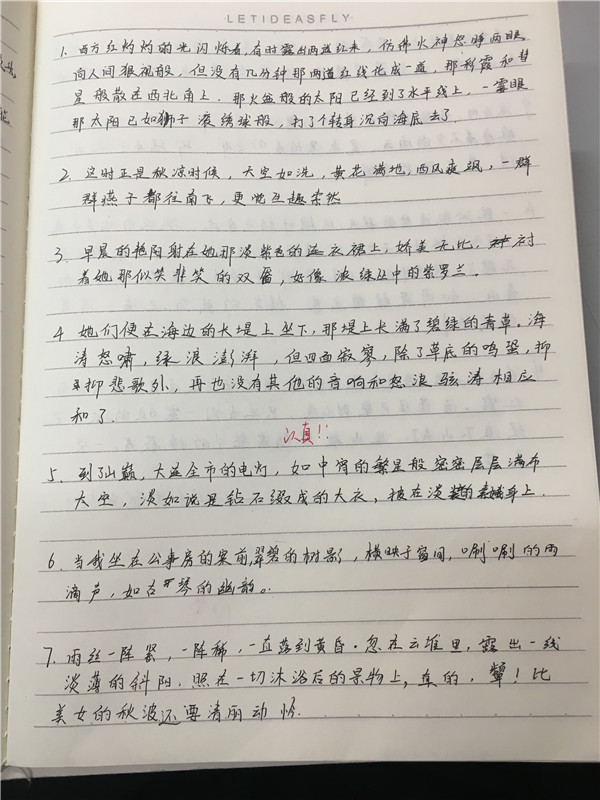 LETIDEASFLY
1. 西方红灼灼的光闪烁着,有时露出两道红来,仿佛火神怒睁两眼
向人间狠视般,但没有几分钟那两道红线化成一道,那彩霞和彗
星般散在西北角上,那火盆般的太阳已经到了水平线上,一霎眼
那太阳已如狮子滚绣球般,打了个转身沉向海底去了.
2. 这时正是秋凉时候,天空如洗,黄花满地,西风爽飒,一群
群燕子都往南飞,更觉生趣索然
3. 早晨的艳阳射在她那淡紫色的连衣裙上,娇美无比,衬
着她那似笑非笑的双靥,好像浓绿丛中的紫罗兰.
4 她们便在海边的大堤上坐下,那堤上长满了碧绿的青草.海
涛怒啸,绿浪澎湃,但四面寂寥,除了草底的鸣蛩,抑
抑悲歌外,再也没有其他的音响和怒浪骇涛相应
和了.
认真!!
5. 到了山巅,大益全市的电灯,如中宵的繁星般密密层层满布
太空,淡如说是钻石缀成的大衣,披在淡装的素娥身上.
6. 当我坐在公事房的案前,翠碧的树影,横映于窗间,唰唰的雨
滴声,如古琴的幽韵。
7. 雨丝一阵紧,一阵稀,一直落到黄昏.忽在云堆里,露出一线
淡薄的斜阳.照在一切沐浴后的景物上,真的,颦!比
美女的秋波还要清丽动怜.